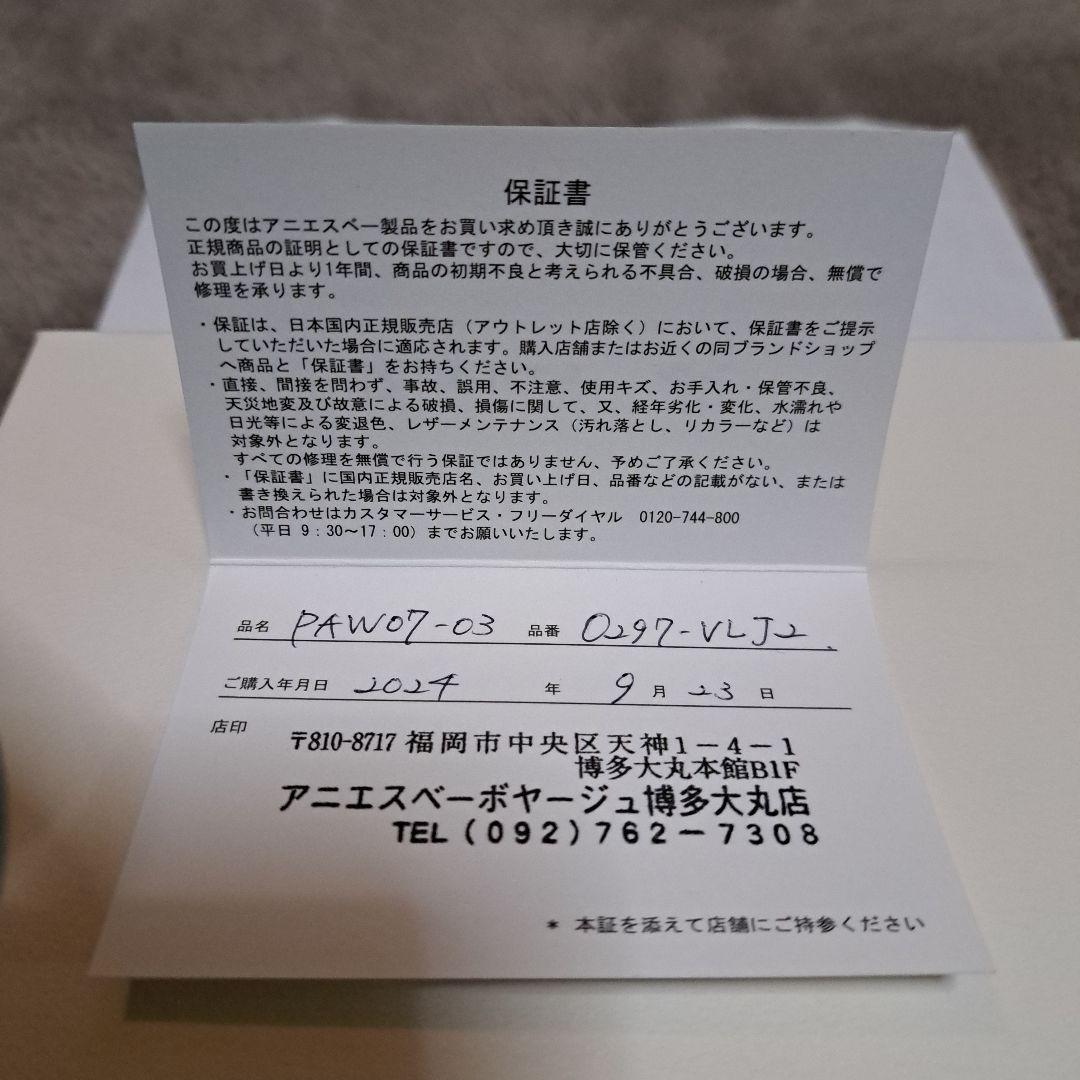 保証書
この度はアニエスベー製品をお買い求め頂き誠にありがとうございます。
正規商品の証明としての保証書ですので、大切に保管ください。
お買上げ日より1年間、商品の初期不良と考えられる不具合、破損の場合、無償で
修理を承ります。
・保証は、日本国内正規販売店（アウトレット店除く）において、保証書をご提示
していただいた場合に適応されます。購入店舗またはお近くの同ブランドショップ
へ商品と「保証書」をお持ちください。
・直接、間接を問わず、事故、誤用、不注意、使用キズ、お手入れ・保管不良、
天災地変及び故意による破損、損傷に関して、又、経年劣化・変化、水濡れや
日光等による変退色、レザーメンテナンス（汚れ落とし、リカラーなど）は
対象外となります。
すべての修理を無償で行う保証ではありません、予めご了承ください。
・「保証書」に国内正規販売店名、お買い上げ日、品番などの記載がない、または
書き換えられた場合は対象外となります。
・お問合わせはカスタマーサービス・フリーダイヤル 0120-744-800
（平日 9：30～17：00）までお願いいたします。
品名 PAW07-03 品番 0297-VLJ2
ご購入年月日 2024 年 9 月 23 日
店印
〒810-8717 福岡市中央区天神1－4－1
博多大丸本館B1F
アニエスベーボヤージュ博多大丸店
TEL（092）762－7308
* 本証を添えて店舗にご持参ください